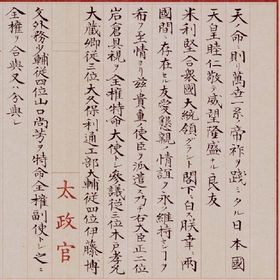 天ノ命則萬立一系ノ帝祚ヲ踐ミタル日本國
天皇睦仁敬テ威望隆盛ナル良友
米利堅合衆國大統領グラント閣下ニ白ス朕幸ニ両
國間ニ存在セル友愛懇親ノ情誼ヲ永維持センコヲ
希フノ至情ヨリ茲ニ貴重ノ使臣ヲ派遣ス乃チ右大臣正二位
岩倉具視ヲ全権特命大使トシ参議従三位木戸孝允
大蔵卿従三位大久保利通工部大輔従四位伊藤博
文外務少輔従四位山口尚芳ヲ特命全権副使トシ之ニ
全権ヲ合與又ハ分與シ
太政官